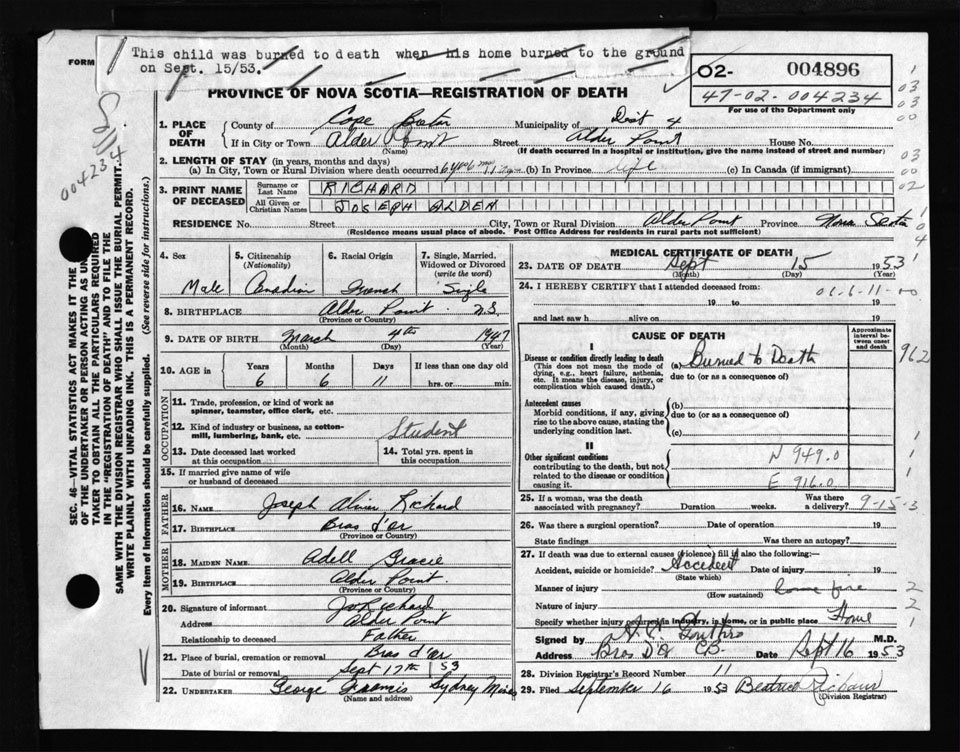 This child was burned to death when his home burned to the ground
on Sept. 15/53.
FORM
O2- 004896
47-02-004234
For use of the Department only
PROVINCE OF NOVA SCOTIA—REGISTRATION OF DEATH
004234
1. PLACE OF DEATH County of Cape Breton Municipality of Dist 4
If in City or Town Alder Point Street Alder Point House No.
(Name) (If death occurred in a hospital or institution, give the name instead of street and number)
2. LENGTH OF STAY (in years, months and days)
(a) In City, Town or Rural Division where death occurred 6 yrs 6 mo 11 days (b) In Province life (c) In Canada (if immigrant)
3. PRINT NAME OF DECEASED Surname or Last Name RICHARD
All Given or Christian Names JOSEPH ALDEN
RESIDENCE No. Street City, Town or Rural Division Alder Point Province Nova Scotia
(Residence means usual place of abode. Post Office Address for residents in rural parts not sufficient)
SEC. 46—VITAL STATISTICS ACT MAKES IT THE
OF THE UNDERTAKER OR PERSON ACTING AS UN
TAKER TO OBTAIN ALL THE PARTICULARS REQUIRED
IN THE "REGISTRATION OF DEATH" AND TO FILE THE
SAME WITH THE DIVISION REGISTRAR WHO SHALL ISSUE THE BURIAL PERMIT.
WRITE PLAINLY WITH UNFADING INK. THIS IS A PERMANENT RECORD.
Every item of information should be carefully supplied. (See reverse side for instructions.)
4. Sex Male
5. Citizenship (Nationality) Canadian
6. Racial Origin French
7. Single, Married, Widowed or Divorced (write the word) Single
8. BIRTHPLACE Alder Point N.S.
(Province or Country)
9. DATE OF BIRTH March 4th 1947
(Month) (Day) (Year)
10. AGE in Years 6 Months 6 Days 11 If less than one day old hrs. or min.
OCCUPATION
11. Trade, profession, or kind of work as spinner, teamster, office clerk, etc.
12. Kind of industry or business, as cotton-mill, lumbering, bank, etc. Student
13. Date deceased last worked at this occupation
14. Total yrs. spent in this occupation
15. If married give name of wife or husband of deceased
FATHER
16. NAME Joseph Alvin Richard
17. BIRTHPLACE Bras d'or
(Province or Country)
MOTHER
18. MAIDEN NAME Adell Gracie
19. BIRTHPLACE Alder Point
(Province or Country)
20. Signature of informant Jos Richard
Address Alder Point
Relationship to deceased Father
21. Place of burial, cremation or removal Bras d'or
Date of burial or removal Sept 17th 53
22. UNDERTAKER George Sydney Mines
(Name and address)
MEDICAL CERTIFICATE OF DEATH
23. DATE OF DEATH Sept 15 1953
(Month) (Day) (Year)
24. I HEREBY CERTIFY that I attended deceased from:
19 to 19
and last saw h alive on 19
CAUSE OF DEATH
Approximate interval between onset and death
I
Disease or condition directly leading to death
(This does not mean the mode of dying, e.g., heart failure, asthenia, etc. It means the disease, injury, or complication which caused death.)
(a) Burned to Death
due to (or as a consequence of)
962
Antecedent causes
Morbid conditions, if any, giving rise to the above cause, stating the underlying condition last.
(b)
due to (or as a consequence of)
(c)
II
Other significant conditions
contributing to the death, but not related to the disease or condition causing it.
N 949.0
E 916.0
25. If a woman, was the death associated with pregnancy? Duration weeks. Was there a delivery? 9-15-3
26. Was there a surgical operation? Date of operation 19
State findings Was there an autopsy?
27. If death was due to external causes (violence) fill in also the following:
Accident, suicide or homicide? Accident Date of injury 19
(State which)
Manner of injury home fire
(How sustained)
Nature of injury
Specify whether injury occurred in industry, in home, or in public place Home
Signed by M.D.
Address Bras D'Or CB Date Sept 16 1953
28. Division Registrar's Record Number 11
29. Filed September 16 1953 Beatrice Richard
(Division Registrar)